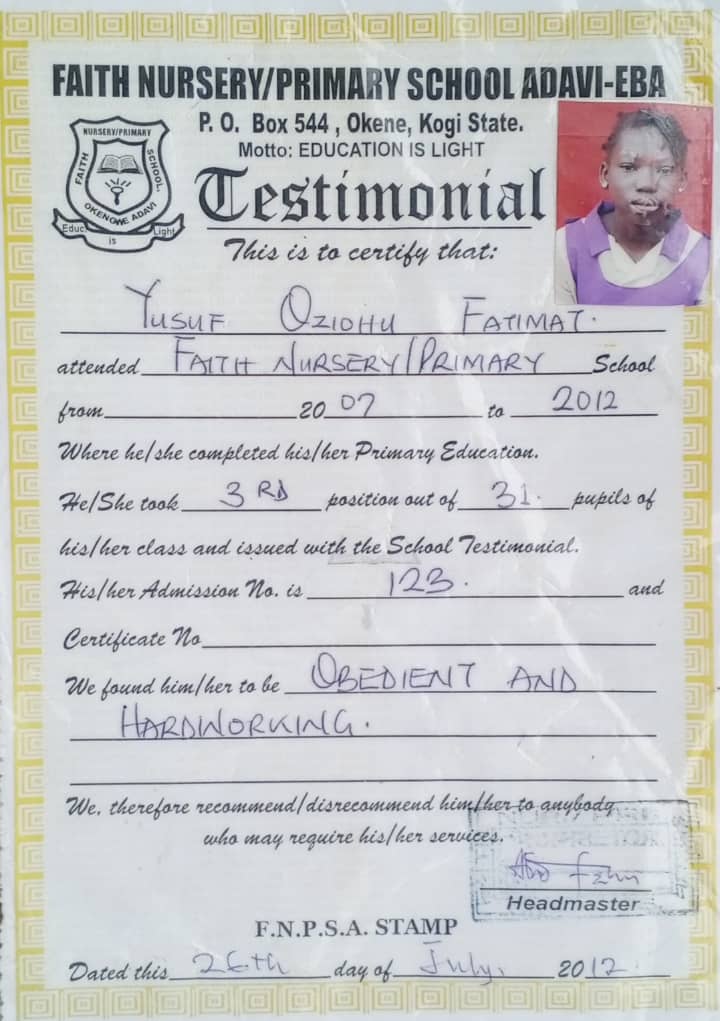 FAITH NURSERY/PRIMARY SCHOOL ADAVI-EBA
P. O. Box 544 , Okene, Kogi State.
Motto: EDUCATION IS LIGHT
NURSERY/PRIMARY
FAITH
SCHOOL.
OKENGWE ADAVI
Educ. is Light
Testimonial
This is to certify that:
YUSUF OZIOHU FATIMAT.
attended FAITH NURSERY/PRIMARY School
from 2007 to 2012
Where he/she completed his/her Primary Education.
He/She took 3RD position out of 31. pupils of
his/her class and issued with the School Testimonial.
His/her Admission No. is 123. and
Certificate No
We found him/her to be OBEDIENT AND
HARDWORKING.
We, therefore recommend/disrecommend him/her to anybody
who may require his/her services.
Headmaster
F.N.P.S.A. STAMP
Dated this 26th day of July, 2012.